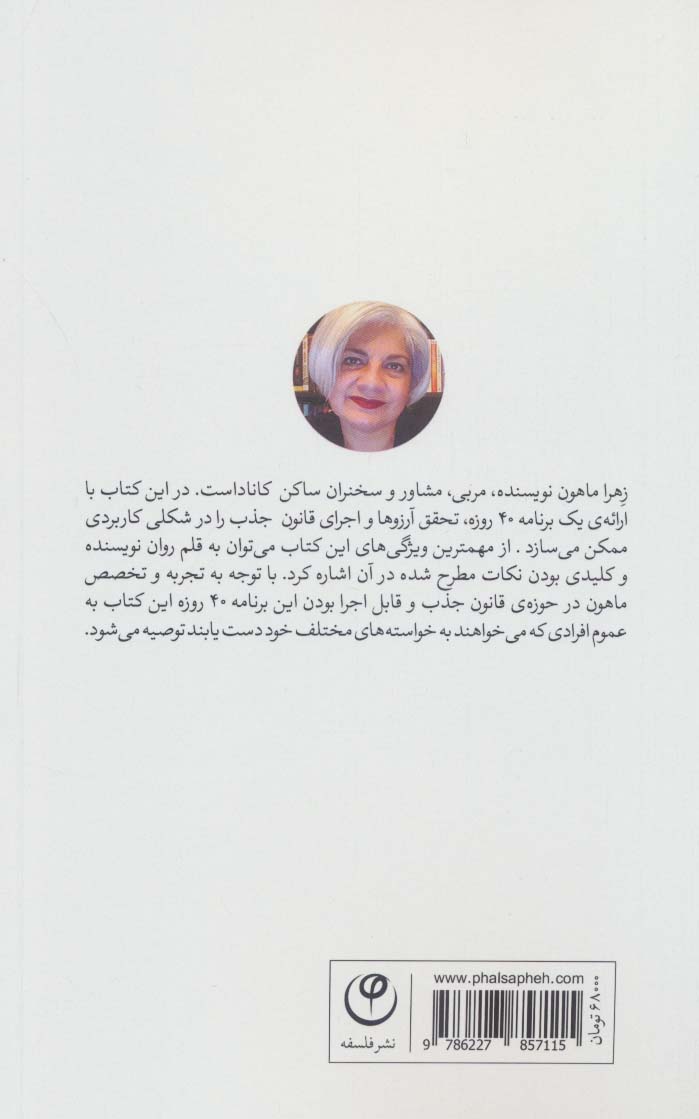 زِهرا ماهون نویسنده، مربی، مشاور و سخنران ساکن کاناداست. در این کتاب با
ارائه‌ی یک برنامه ۴۰ روزه، تحقق آرزوها و اجرای قانون جذب را در شکلی کاربردی
ممکن می‌سازد . از مهمترین ویژگی‌های این کتاب می‌توان به قلم روان نویسنده
و کلیدی بودن نکات مطرح شده در آن اشاره کرد. با توجه به تجربه و تخصص
ماهون در حوزه‌ی قانون جذب و قابل اجرا بودن این برنامه ۴۰ روزه این کتاب به
عموم افرادی که می‌خواهند به خواسته‌های مختلف خود دست یابند توصیه می‌شود.
www.phalsapheh.com
۶۸۰۰۰ تومان
9 786227 857115
نشر فلسفه